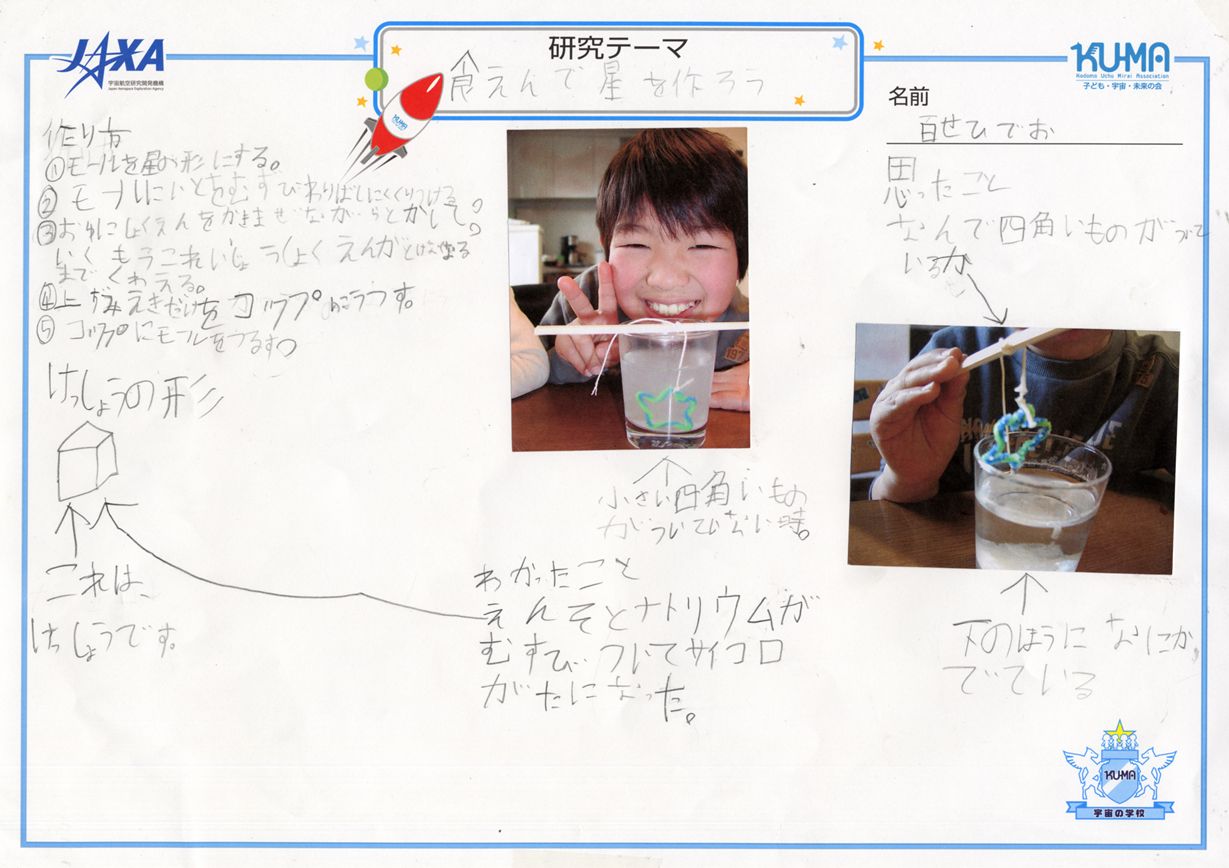 JAXA
宇宙航空研究開発機構
Japan Aerospace Exploration Agency
研究テーマ
食えんで星を作ろう
KUMA
KUMA
Kodomo Uchu Mirai Association
子ども・宇宙・未来の会
名前
百せひでお
作り方
①モールを星の形にする。
②モールにいとをむすびわりばしにくくりつける。
③おゆにしょくえんをかきまぜながらとかして。
いくもうこれいじょうしょくえんがとけなくなる
までくわえる。
④上ずみえきだけをコップにうつす。
⑤コップにモールをつるす。
けっしょうの形
これは、
けっしょうです。
小さい四角いもの
がついてない時。
わかったこと
えんそとナトリウムが
むすびついてサイコロ
がたになった。
思ったこと
なんで四角いものがついて
いるか
下のほうになにか
でている
KUMA
宇宙の学校